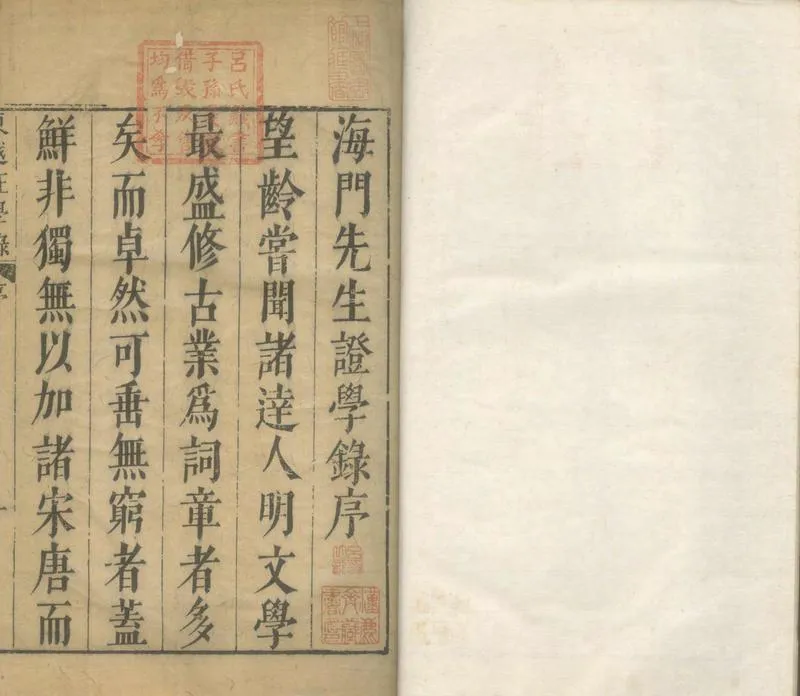 海門先生證學錄序
望齡嘗聞諸達人明文學
最盛修古業爲詞章者多
矣而卓然可垂無窮者蓋
鮮非獨無以加諸宋唐而
東越証學錄 序
一
呂氏藏書
子孫
均爲不孝